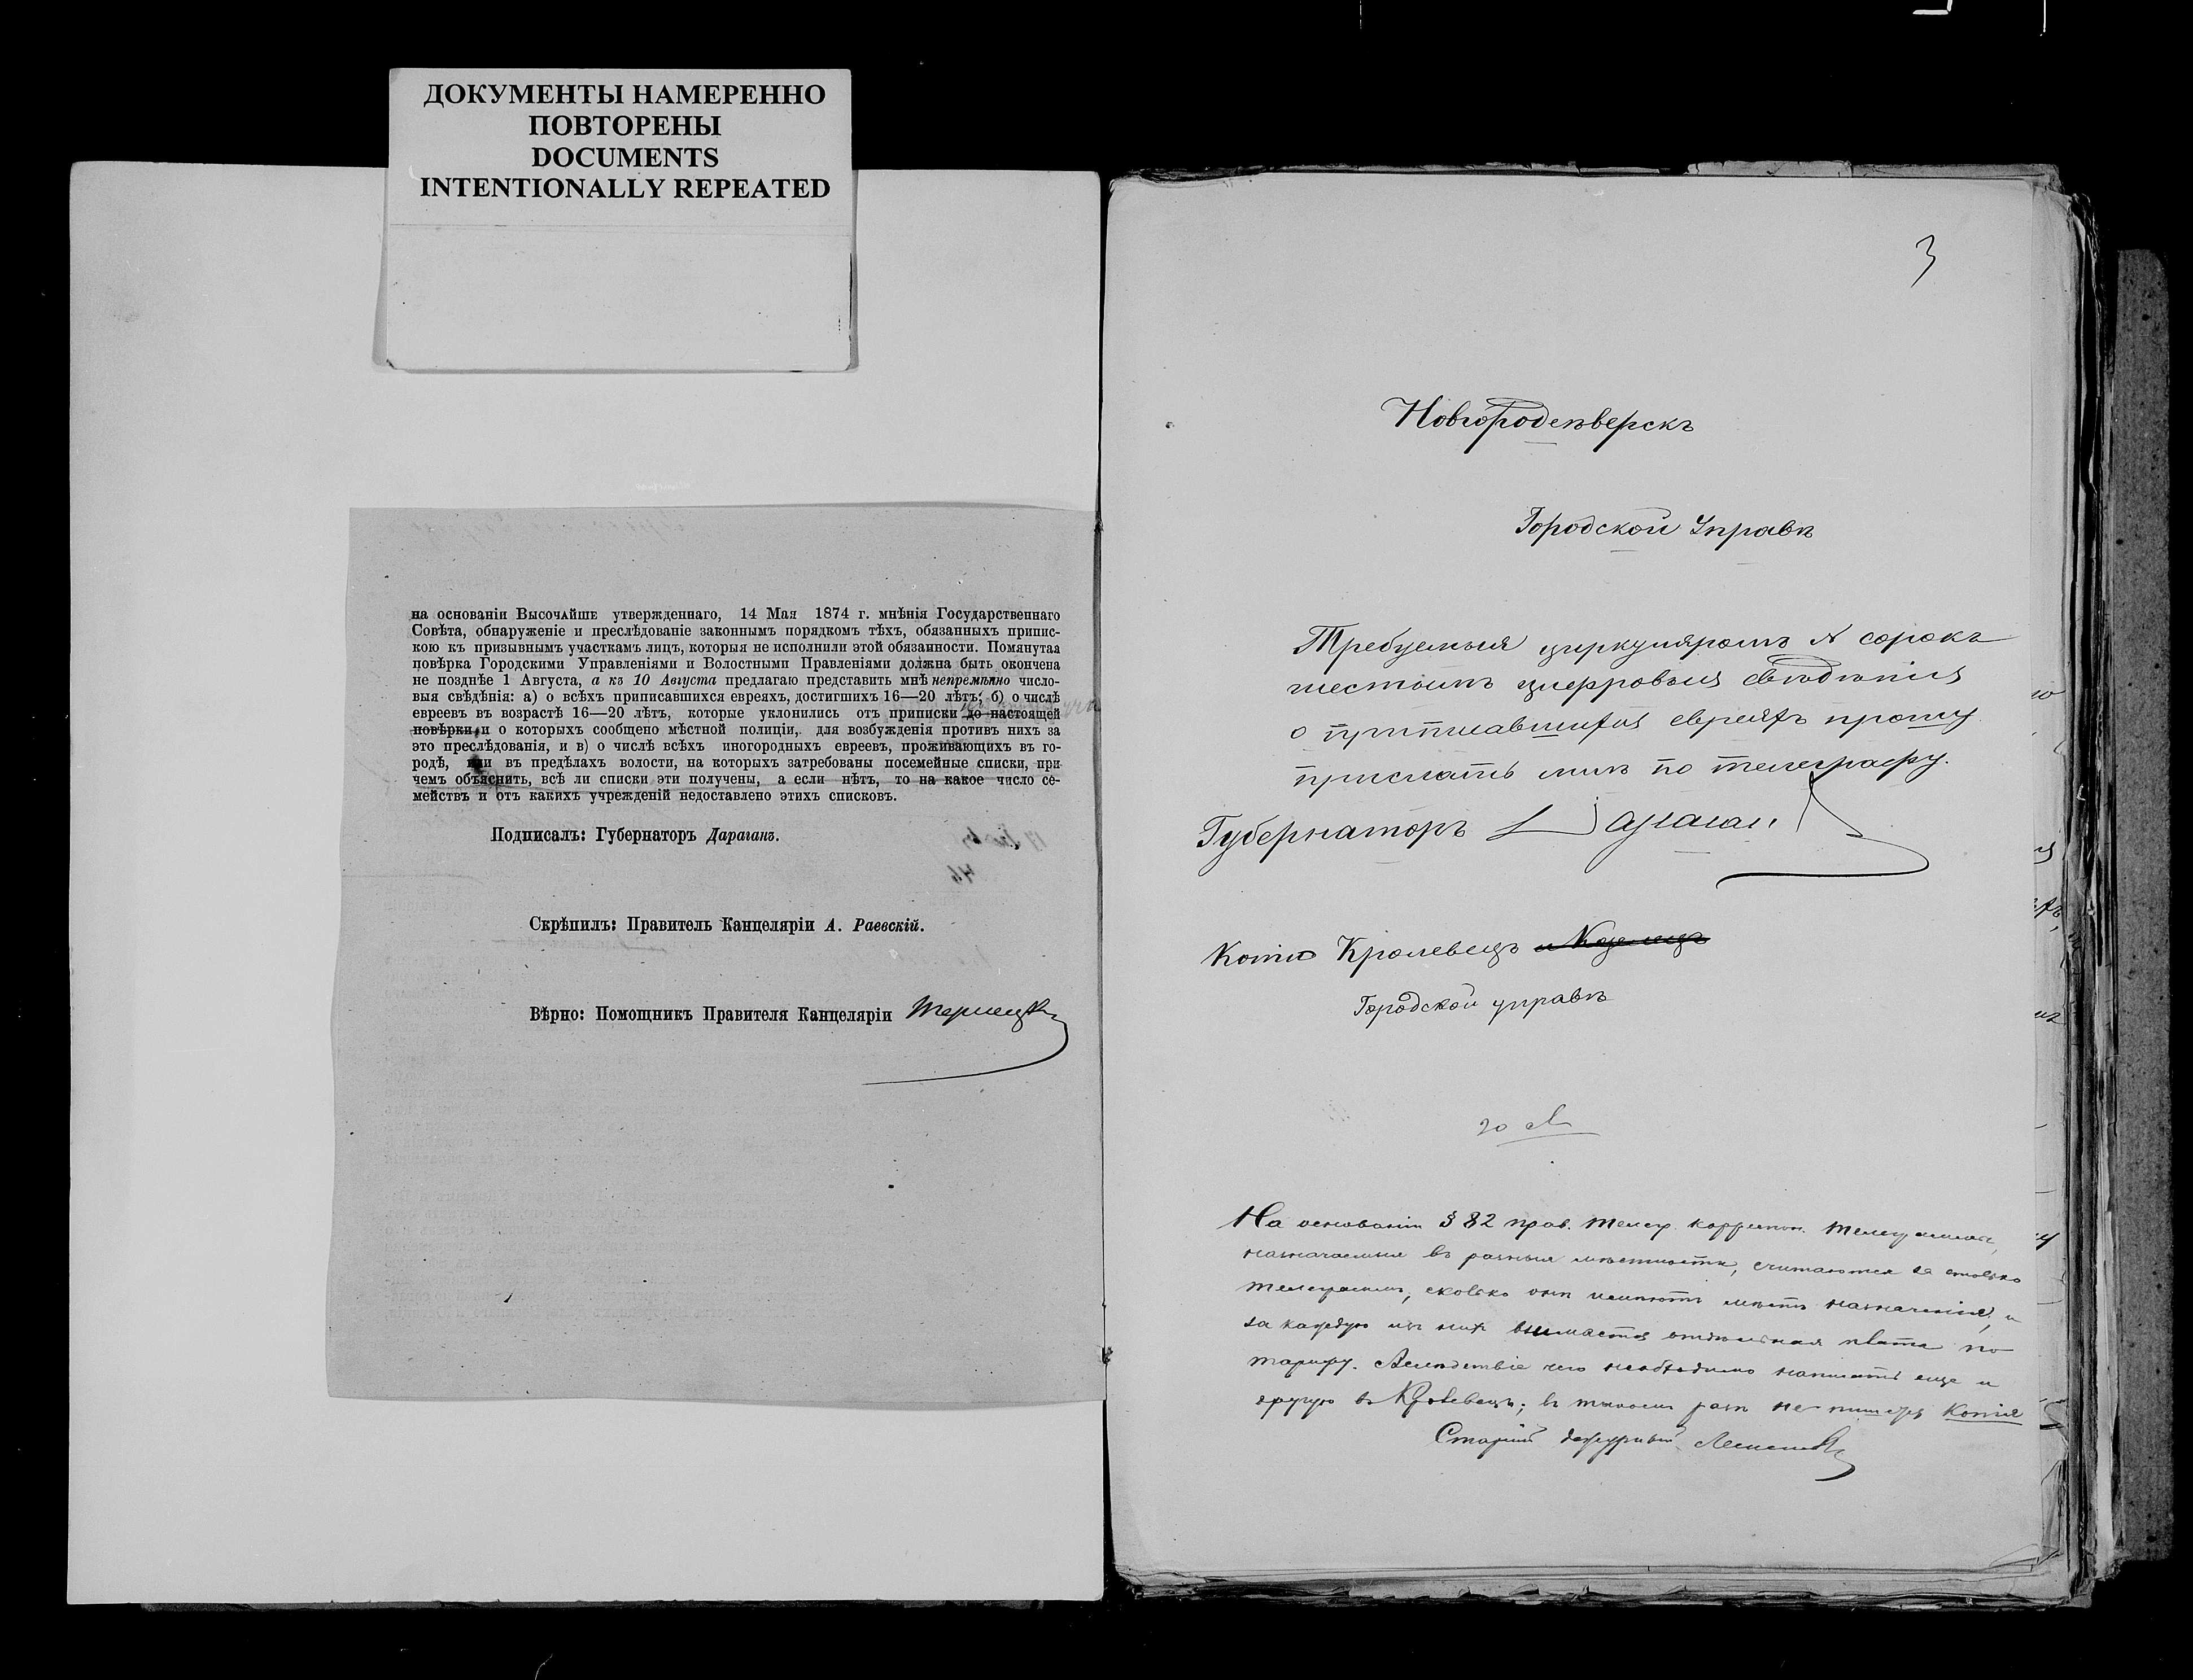 ДОКУМЕНТЫ НАМЕРЕННО
ПОВТОРЕНЫ
DOCUMENTS
INTENTIONALLY REPEATED
на основаніи Высочайше утвержденнаго, 14 Мая 1874 г. мнѣнія Государственнаго
Совѣта, обнаруженіе и преслѣдованіе законнымъ порядкомъ тѣхъ, обязанныхъ припис-
кою къ призывнымъ участкамъ лицъ, которыя не исполнили этой обязанности. Помянутая
повѣрка Городскими Управленіями и Волостными Правленіями должна быть окончена
не позднѣе 1 Августа, а къ 10 Августа предлагаю представить мнѣ непремѣнно число-
выя свѣдѣнія: а) о всѣхъ приписавшихся евреяхъ, достигшихъ 16—20 лѣтъ; б) о числѣ
евреевъ въ возрастѣ 16—20 лѣтъ, которые уклонились отъ приписки до настоящей
повѣрки и о которыхъ сообщено мѣстной полиціи, для возбужденія противъ нихъ за
это преслѣдованія, и в) о числѣ всѣхъ иногородныхъ евреевъ, проживающихъ въ го-
родѣ, или въ предѣлахъ волости, на которыхъ затребованы посемейные списки, при
чемъ объяснить, всѣ ли списки эти получены, а если нѣтъ, то на какое число се-
мействъ и отъ какихъ учрежденій недоставлено этихъ списковъ.
Подписалъ: Губернаторъ Дараганъ.
Скрѣпилъ: Правитель Канцеляріи А. Раевскій.
Вѣрно: Помощникъ Правителя Канцеляріи
3
Новгородсѣверскъ
Городской Управѣ
Требуемыя циркуляромъ № сорокъ
шестымъ цифровыя свѣдѣнія
о приписавшихся евреяхъ прошу
прислать мнѣ по телеграфу.
Губернаторъ Дараган
Копія Кролевецъ и Козелецъ
Городской управѣ
20
На основаніи § 82 прав. телегр. корреспон. телеграммы,
назначаемыя въ разныя мѣстности, считаются за столько
телеграммъ, сколько онѣ имѣютъ мѣстъ назначенія, и
за каждую изъ нихъ взимается отдѣльная плата по
тарифу. Вслѣдствіе чего необходимо написать еще и
другую въ Кролевецъ; въ такомъ разѣ не пишется копія
Старшій дежурный